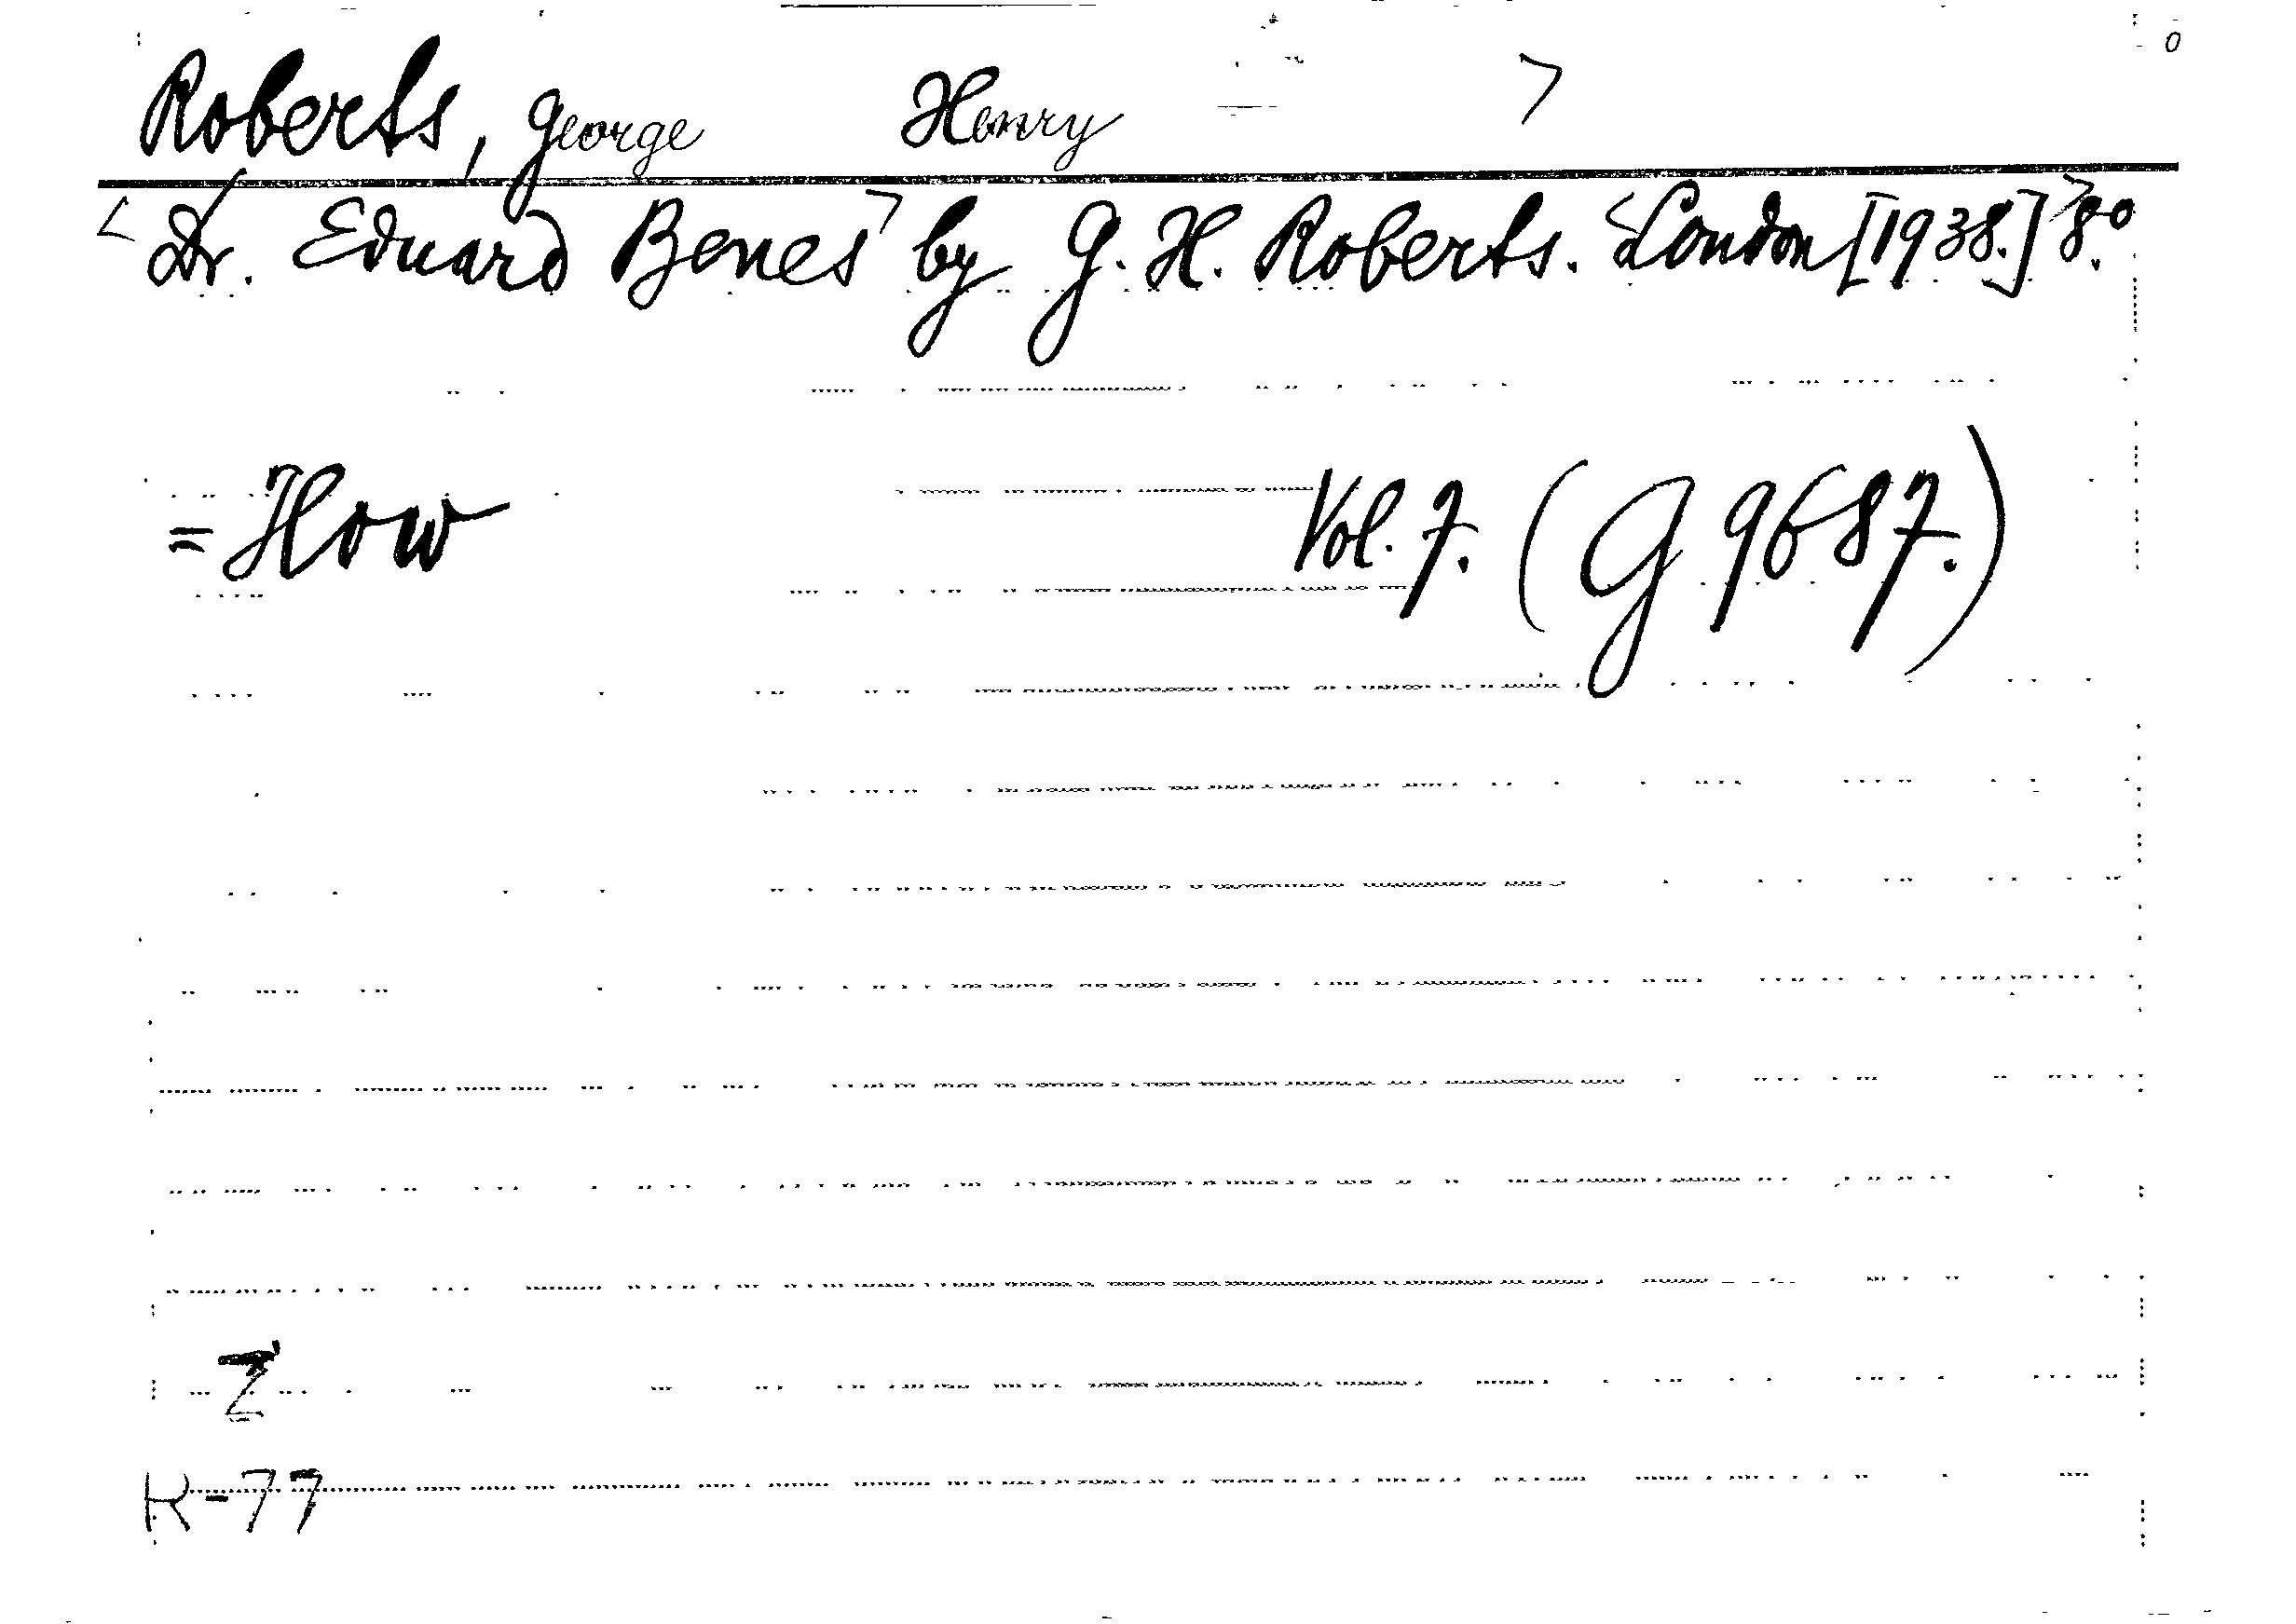 Roberts, George Henry >
< Dr. Eduard Benes > by G. H. Roberts. < London [1938.] > 8.º
= How Vol. 7. (G 9687.)
Z
K-77